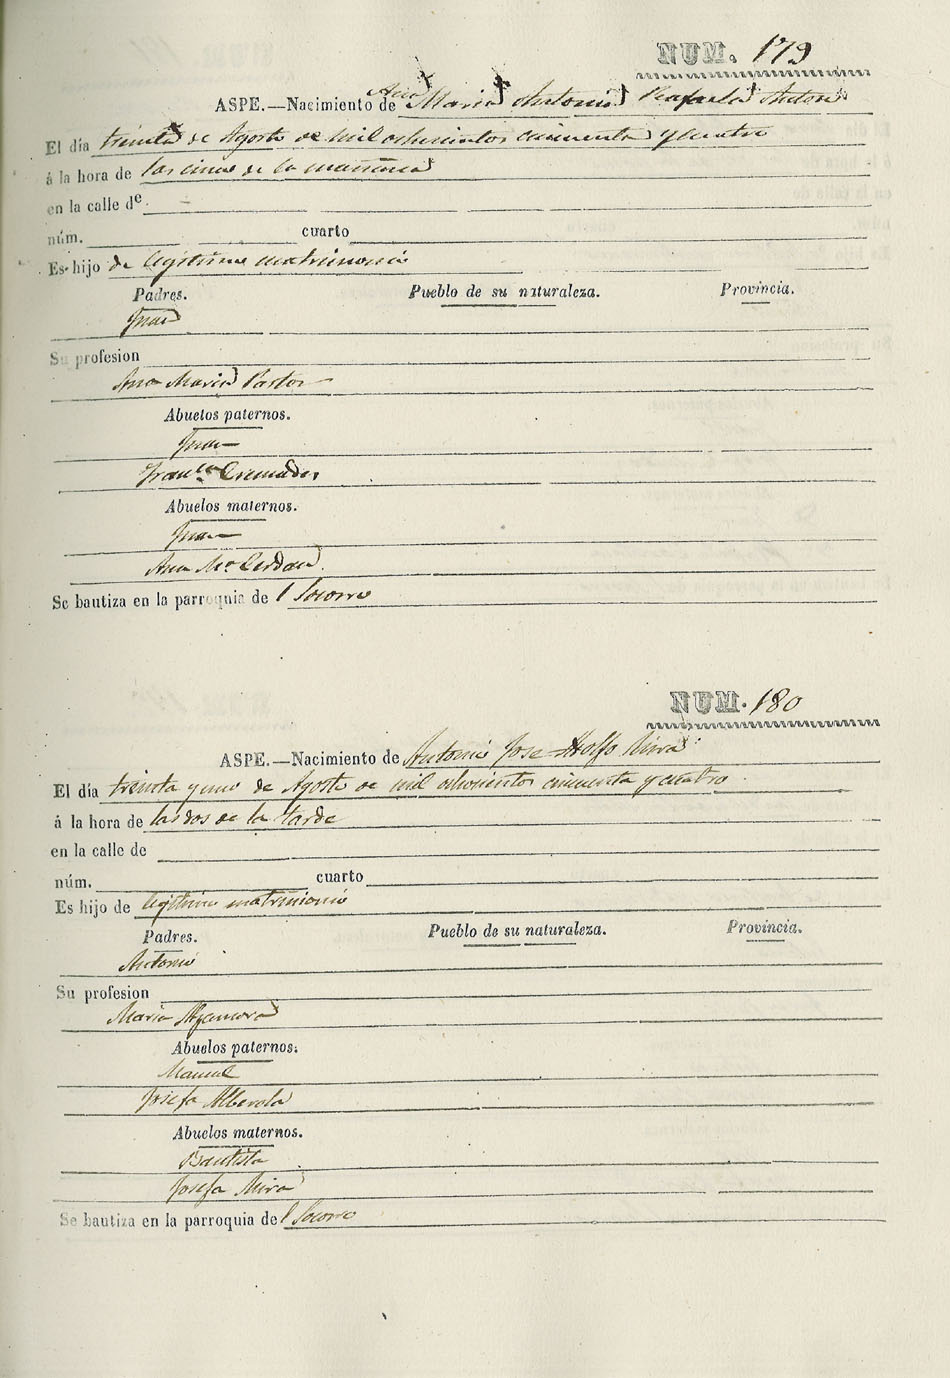 NUM. 179
ASPE.—Nacimiento de Ana Maria Antonia Rafaela Anton
El día treinta de Agosto de mil ochocientos cincuenta y cuatro
á la hora de las cinco de la mañana
en la calle de
núm. cuarto
Es hijo de legitimo matrimonio
Padres. Pueblo de su naturaleza. Provincia.
Juan
Su profesion
Ana Maria Pastor
Abuelos paternos.
Juan
Franca Cremades
Abuelos maternos.
Juan
Ana Ma Cerdan
Se bautiza en la parroquia de l Socorro
NUM. 180
ASPE.—Nacimiento de Antonio Jose Adolfo Mira
El día treinta y uno de Agosto de mil ochocientos cincuenta y cuatro
á la hora de las dos de la tarde
en la calle de
núm. cuarto
Es hijo de legitimo matrimonio
Padres. Pueblo de su naturaleza. Provincia.
Antonio
Su profesion
Maria
Abuelos paternos.
Manuel
Josefa Alberola
Abuelos maternos.
Bautista
Josefa Mira
Se bautiza en la parroquia de l Socorro